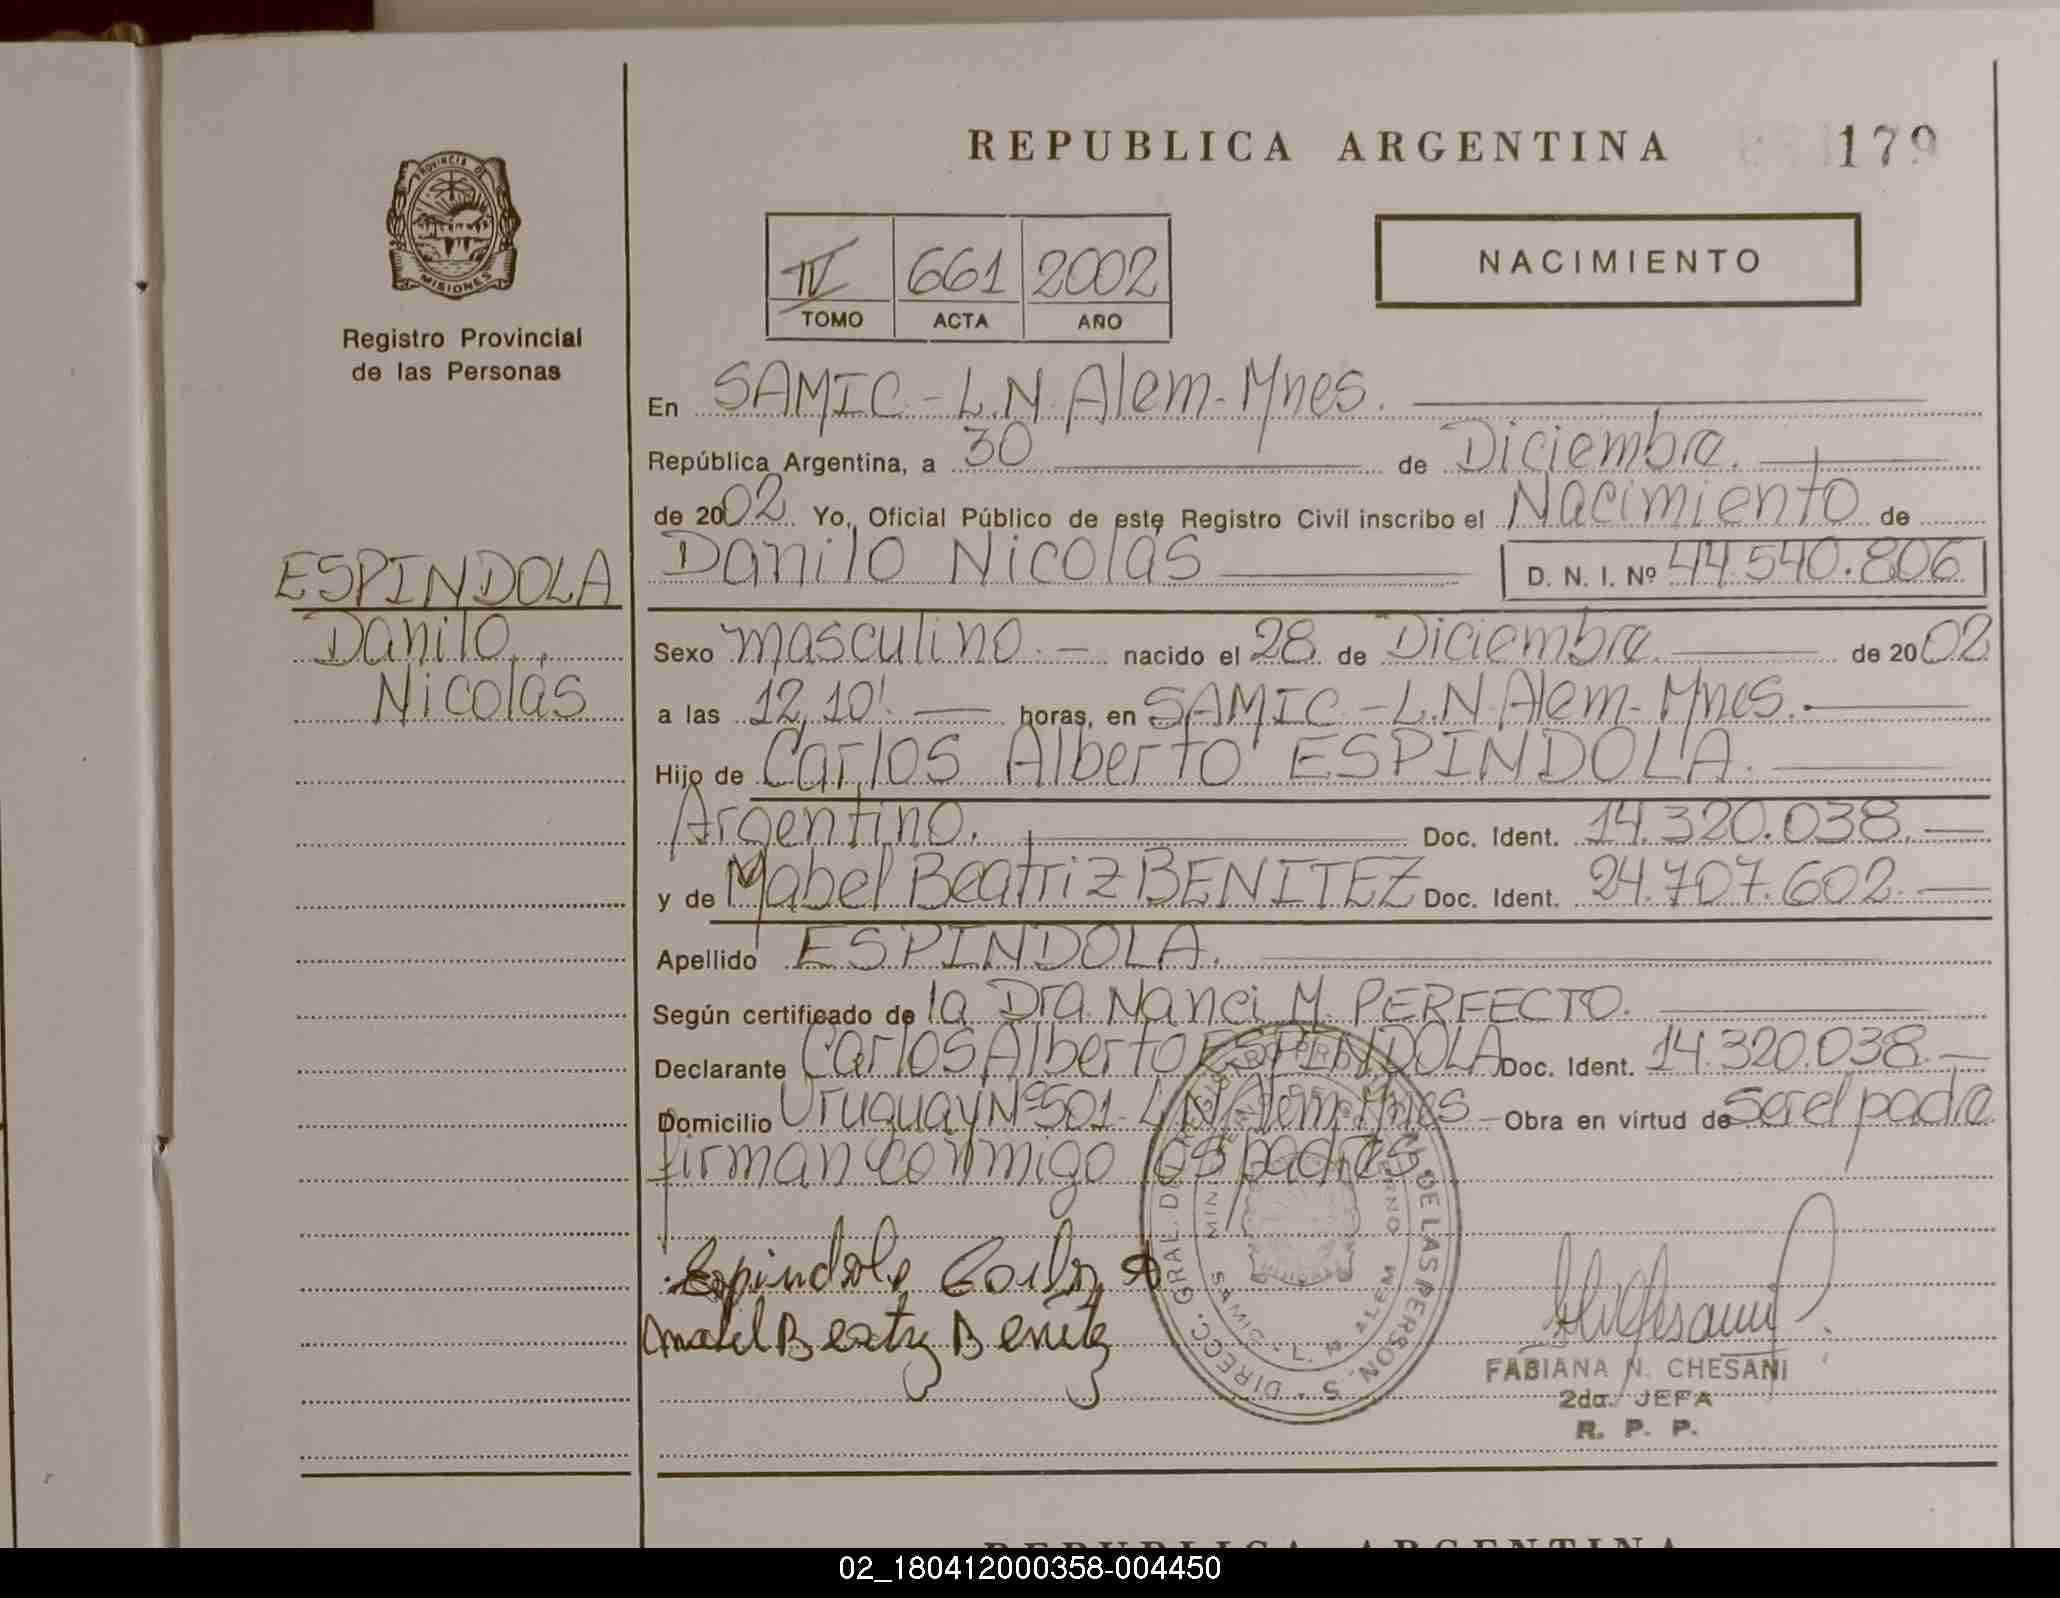 REPUBLICA ARGENTINA 179
PROVINCIA DE MISIONES
Registro Provincial
de las Personas
IV 661 2002
TOMO ACTA AÑO
NACIMIENTO
En SAMIC - L.N. Alem - Mnes.
República Argentina, a 30 de Diciembre.
de 2002 Yo, Oficial Público de este Registro Civil inscribo el Nacimiento de
Danilo Nicolás D. N. I. Nº 44.540.806
ESPINDOLA
Danilo
Nicolás
Sexo masculino. nacido el 28 de Diciembre de 2002
a las 12,10' horas, en SAMIC - L.N. Alem - Mnes.
Hijo de Carlos Alberto ESPINDOLA.
Argentino. Doc. Ident. 14.320.038.
y de Mabel Beatriz BENITEZ Doc. Ident. 24.707.602.
Apellido ESPINDOLA.
Según certificado de la Dra. Nanci M. PERFECTO.
Declarante Carlos Alberto ESPINDOLA Doc. Ident. 14.320.038.
Domicilio Uruguay Nº 501 - L.N. Alem - Mnes - Obra en virtud de ser el padre
firman conmigo los padres
Espindola Carlos A
Mabel Beatriz Benitez
FABIANA N. CHESANI
2da. JEFA
R. P. P.
REPUBLICA ARGENTINA
02_180412000358-004450